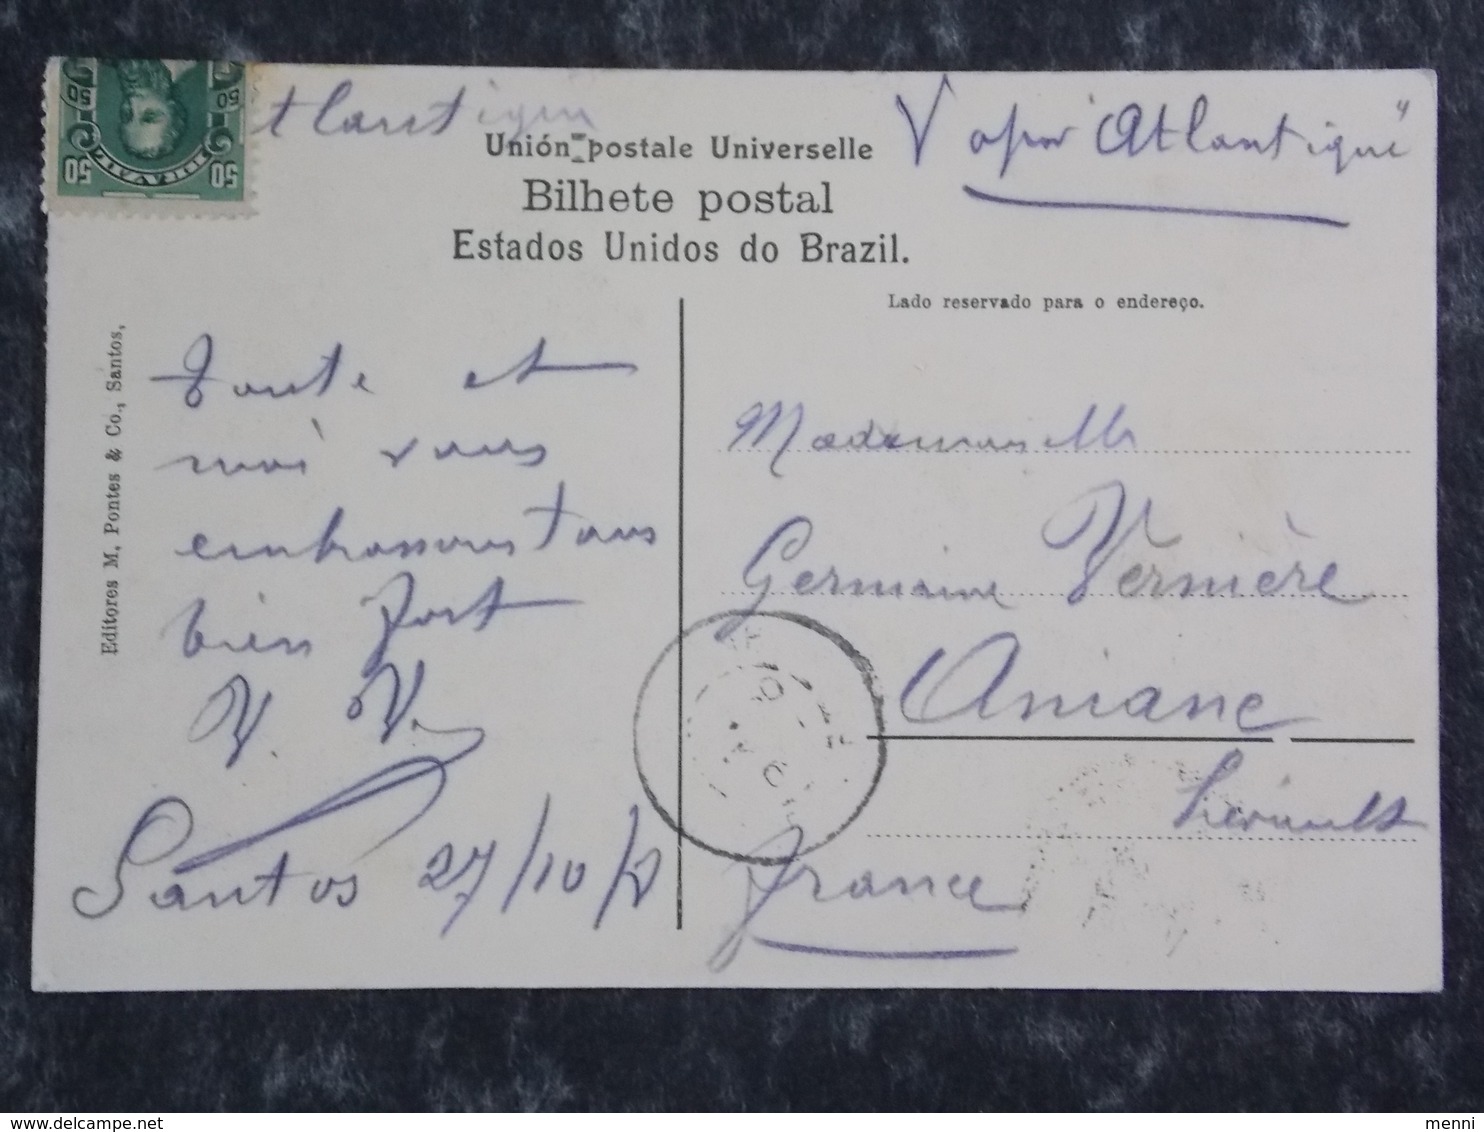 50 50
50 50
tlantique
Vapor "Atlantique"
Unión postale Universelle
Bilhete postal
Estados Unidos do Brazil.
Lado reservado para o endereço.
Editores M. Pontes & Co., Santos,
et
moi vous
embrassons tous
bien fort
V. V.
Santos 27/10/
Mademoiselle
Germaine Vernière
Aniane
Hérault
France
delcampe.net
menni